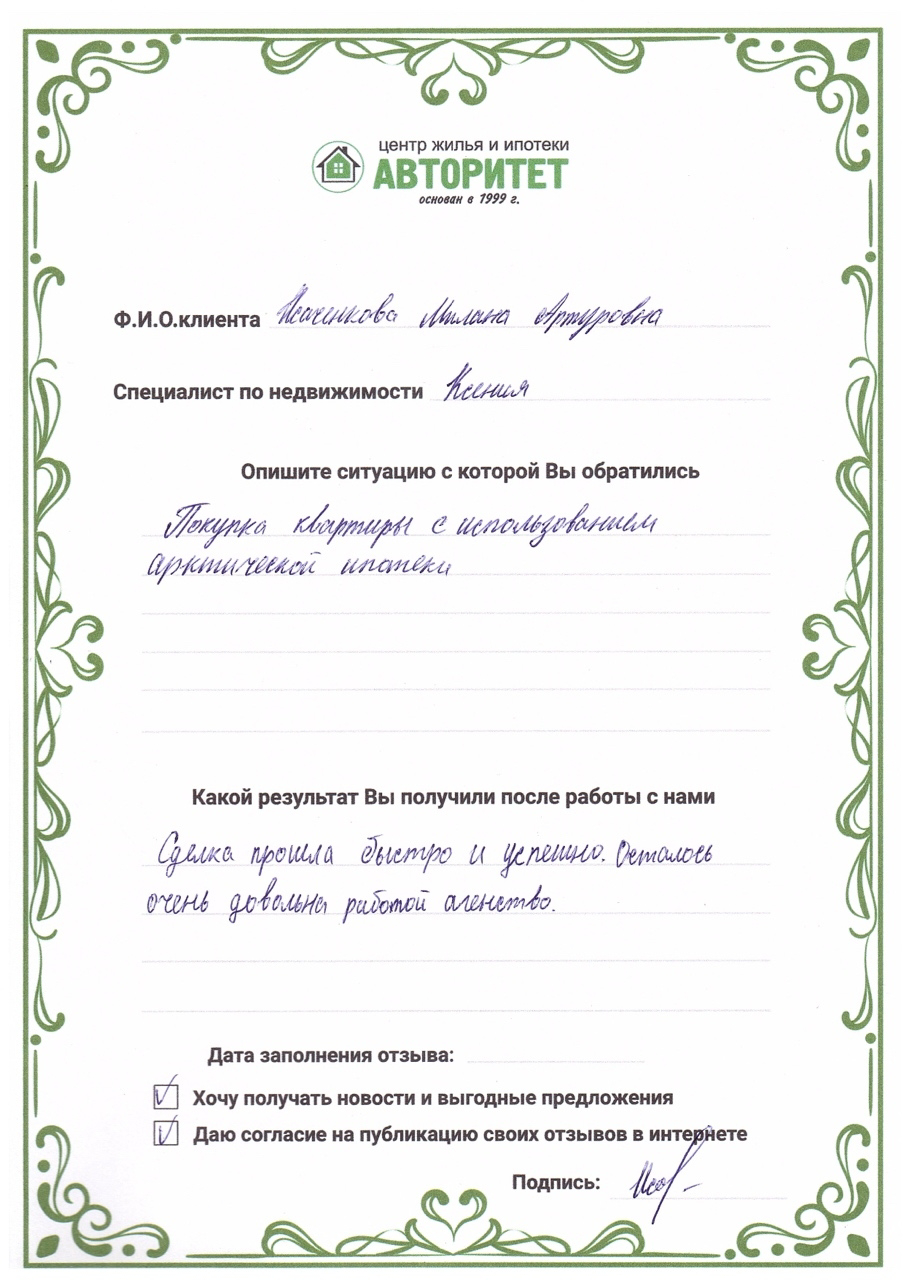 центр жилья и ипотеки
АВТОРИТЕТ
основан в 1999 г.
Ф.И.О.клиента Исаченкова Милана Артуровна
Специалист по недвижимости Ксения
Опишите ситуацию с которой Вы обратились
Покупка квартиры с использованием
арктической ипотеки
Какой результат Вы получили после работы с нами
Сделка прошла быстро и успешно. Осталось
очень довольна работой агенство.
Дата заполнения отзыва:
Хочу получать новости и выгодные предложения
Даю согласие на публикацию своих отзывов в интернете
Подпись: